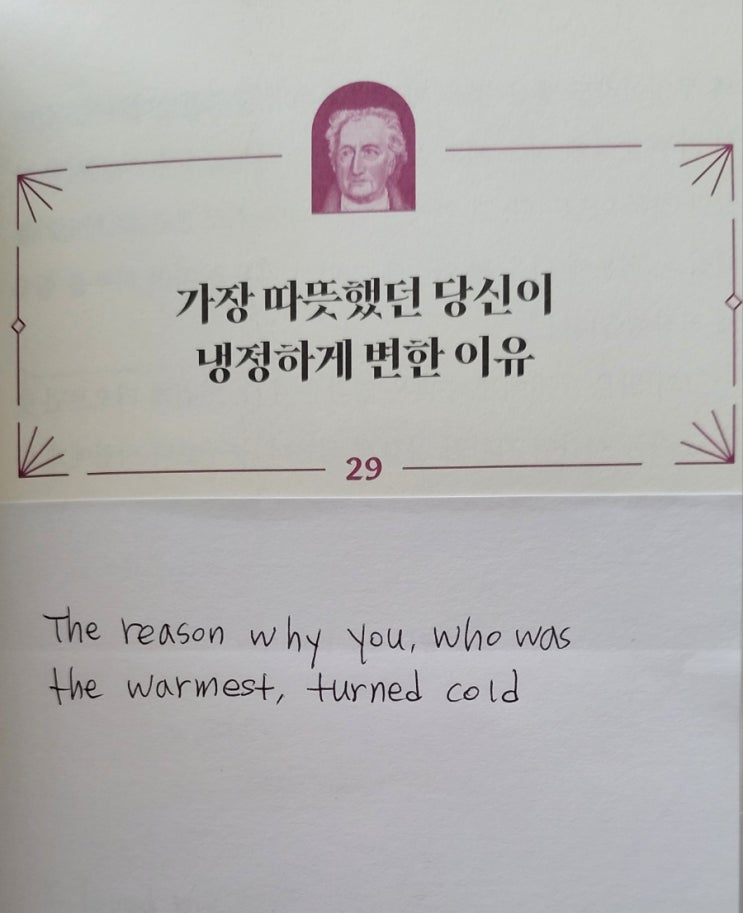 가장 따뜻했던 당신이
냉정하게 변한 이유
29
The reason why you, who was
the warmest, turned cold